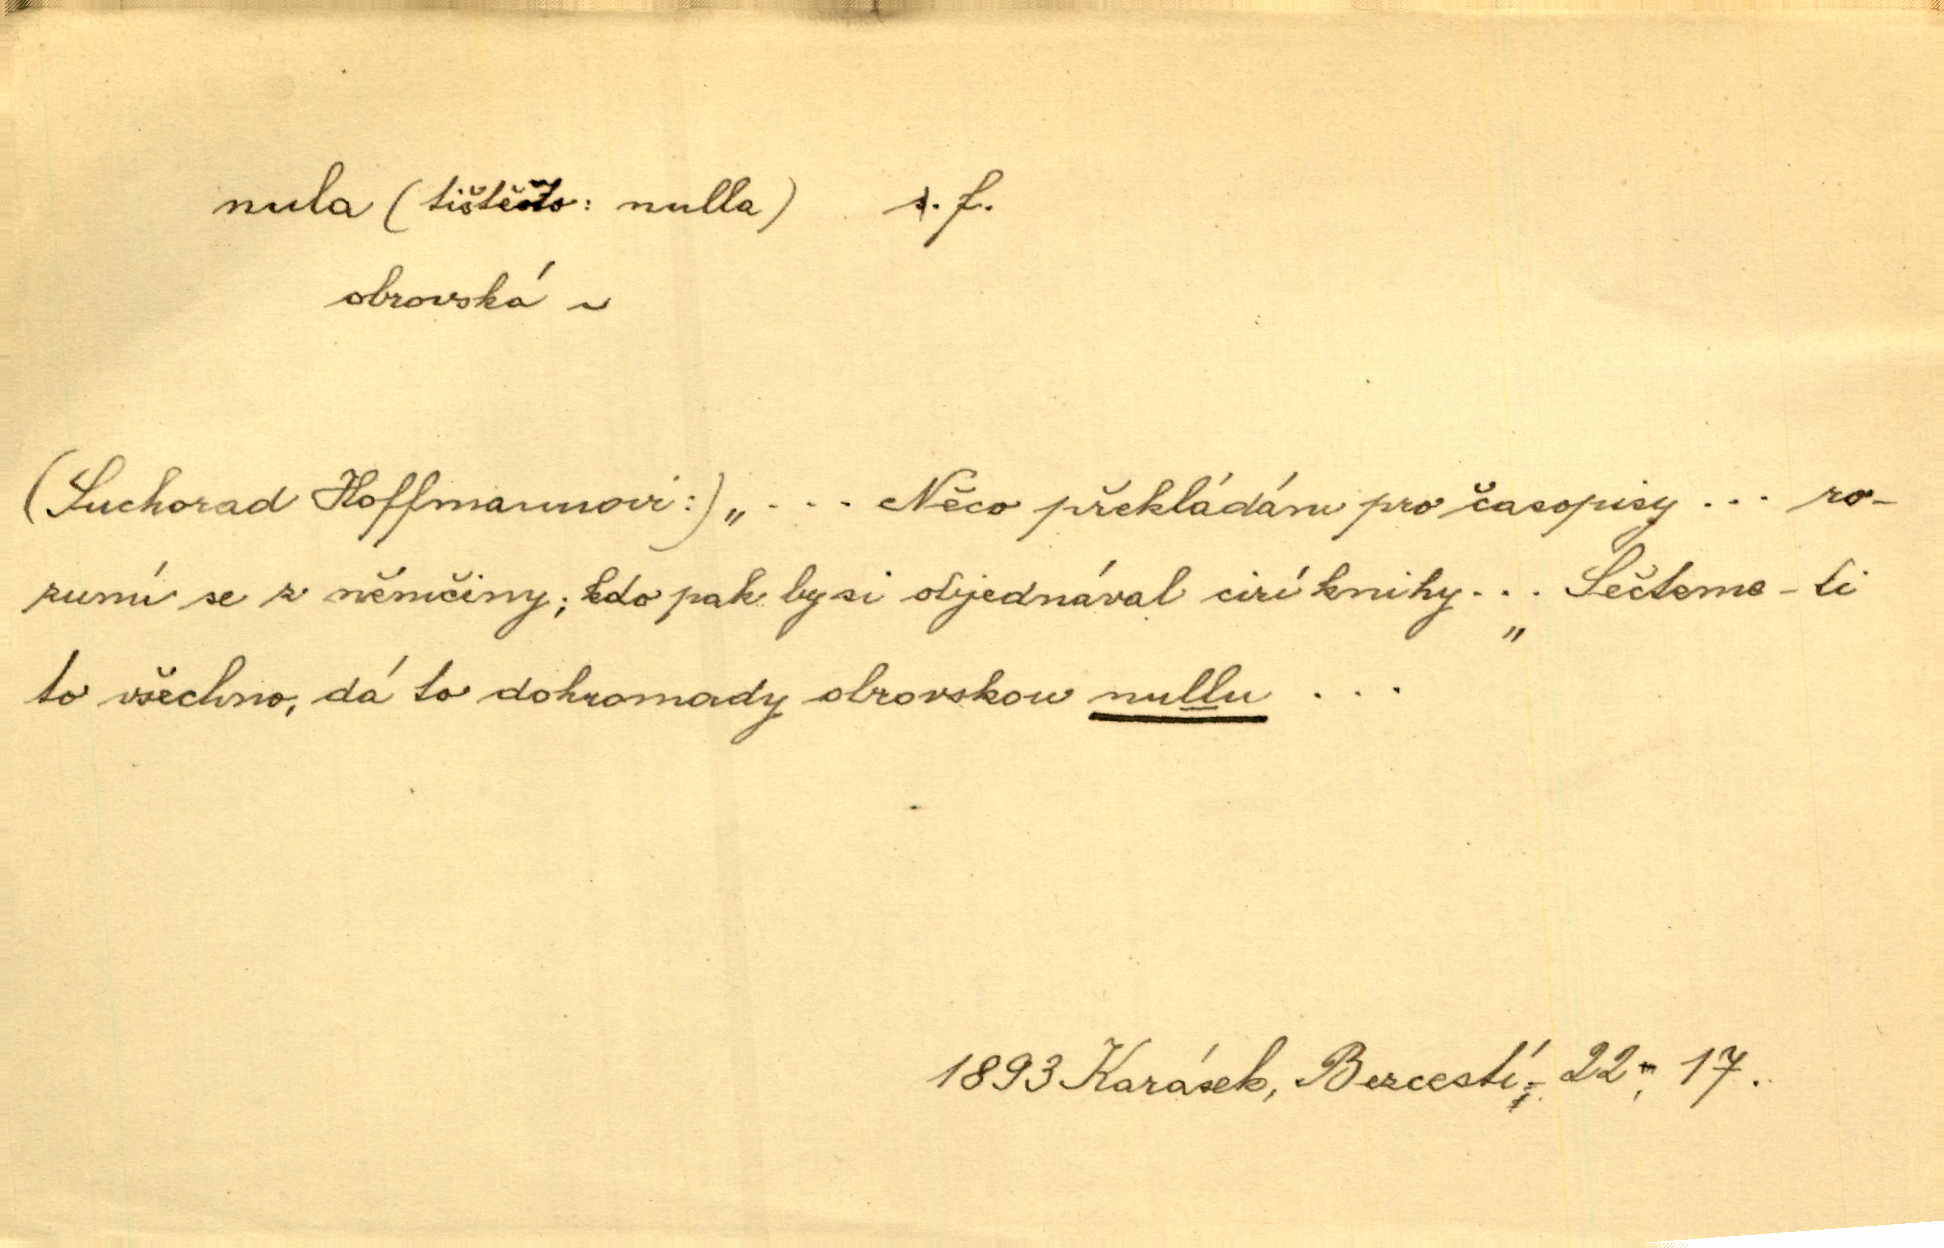 nula (tištěno: nulla) s. f.
obrovská ~
(Suchorad Hoffmannovi:) „ . . . Něco překládám pro časopisy . . . ro-
zumí se z němčiny; kdo pak by si objednával cizí knihy . . . „ Sečteme-li
to všechno, dá to dohromady obrovskou nullu . . .
1893 Karásek, Bezcestí, 22, 17.